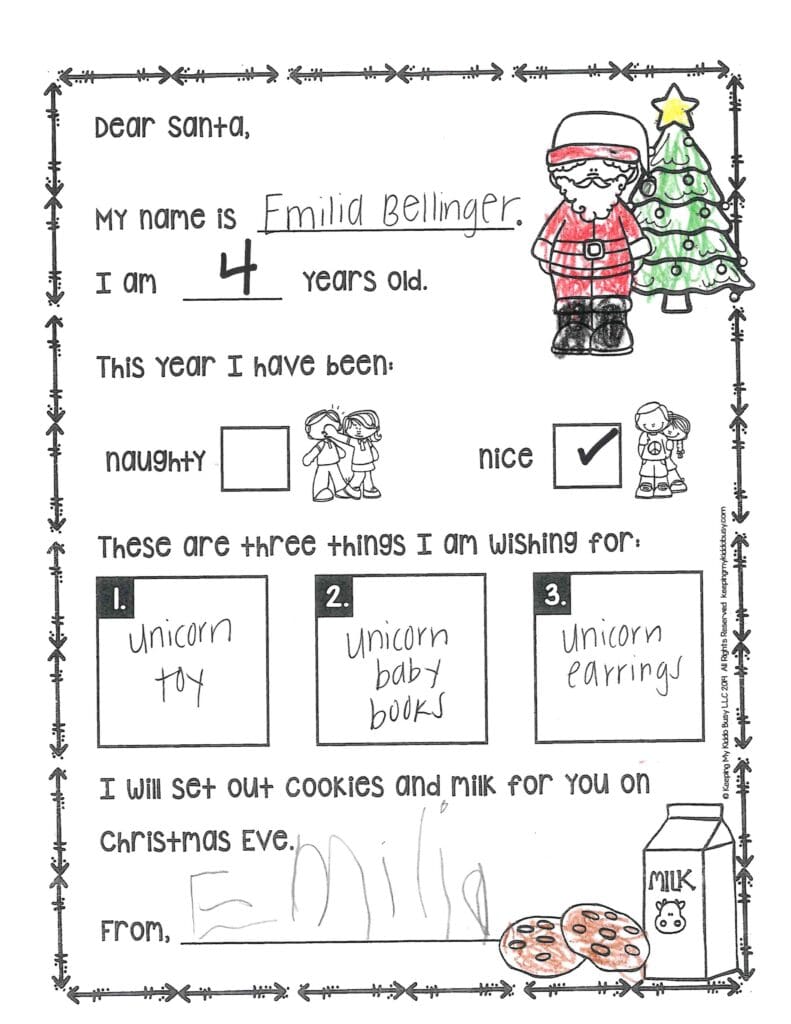 Dear Santa,
My name is Emilia Bellinger.
I am 4 years old.
This year I have been:
naughty
nice ✓
These are three things I am wishing for:
1.
unicorn
toy
2.
unicorn
baby
books
3.
unicorn
earrings
© Keeping My Kiddo Busy LLC 2019 All Rights Reserved keepingmykiddobusy.com
I will set out cookies and milk for you on
Christmas Eve.
From, Emilia
MILK